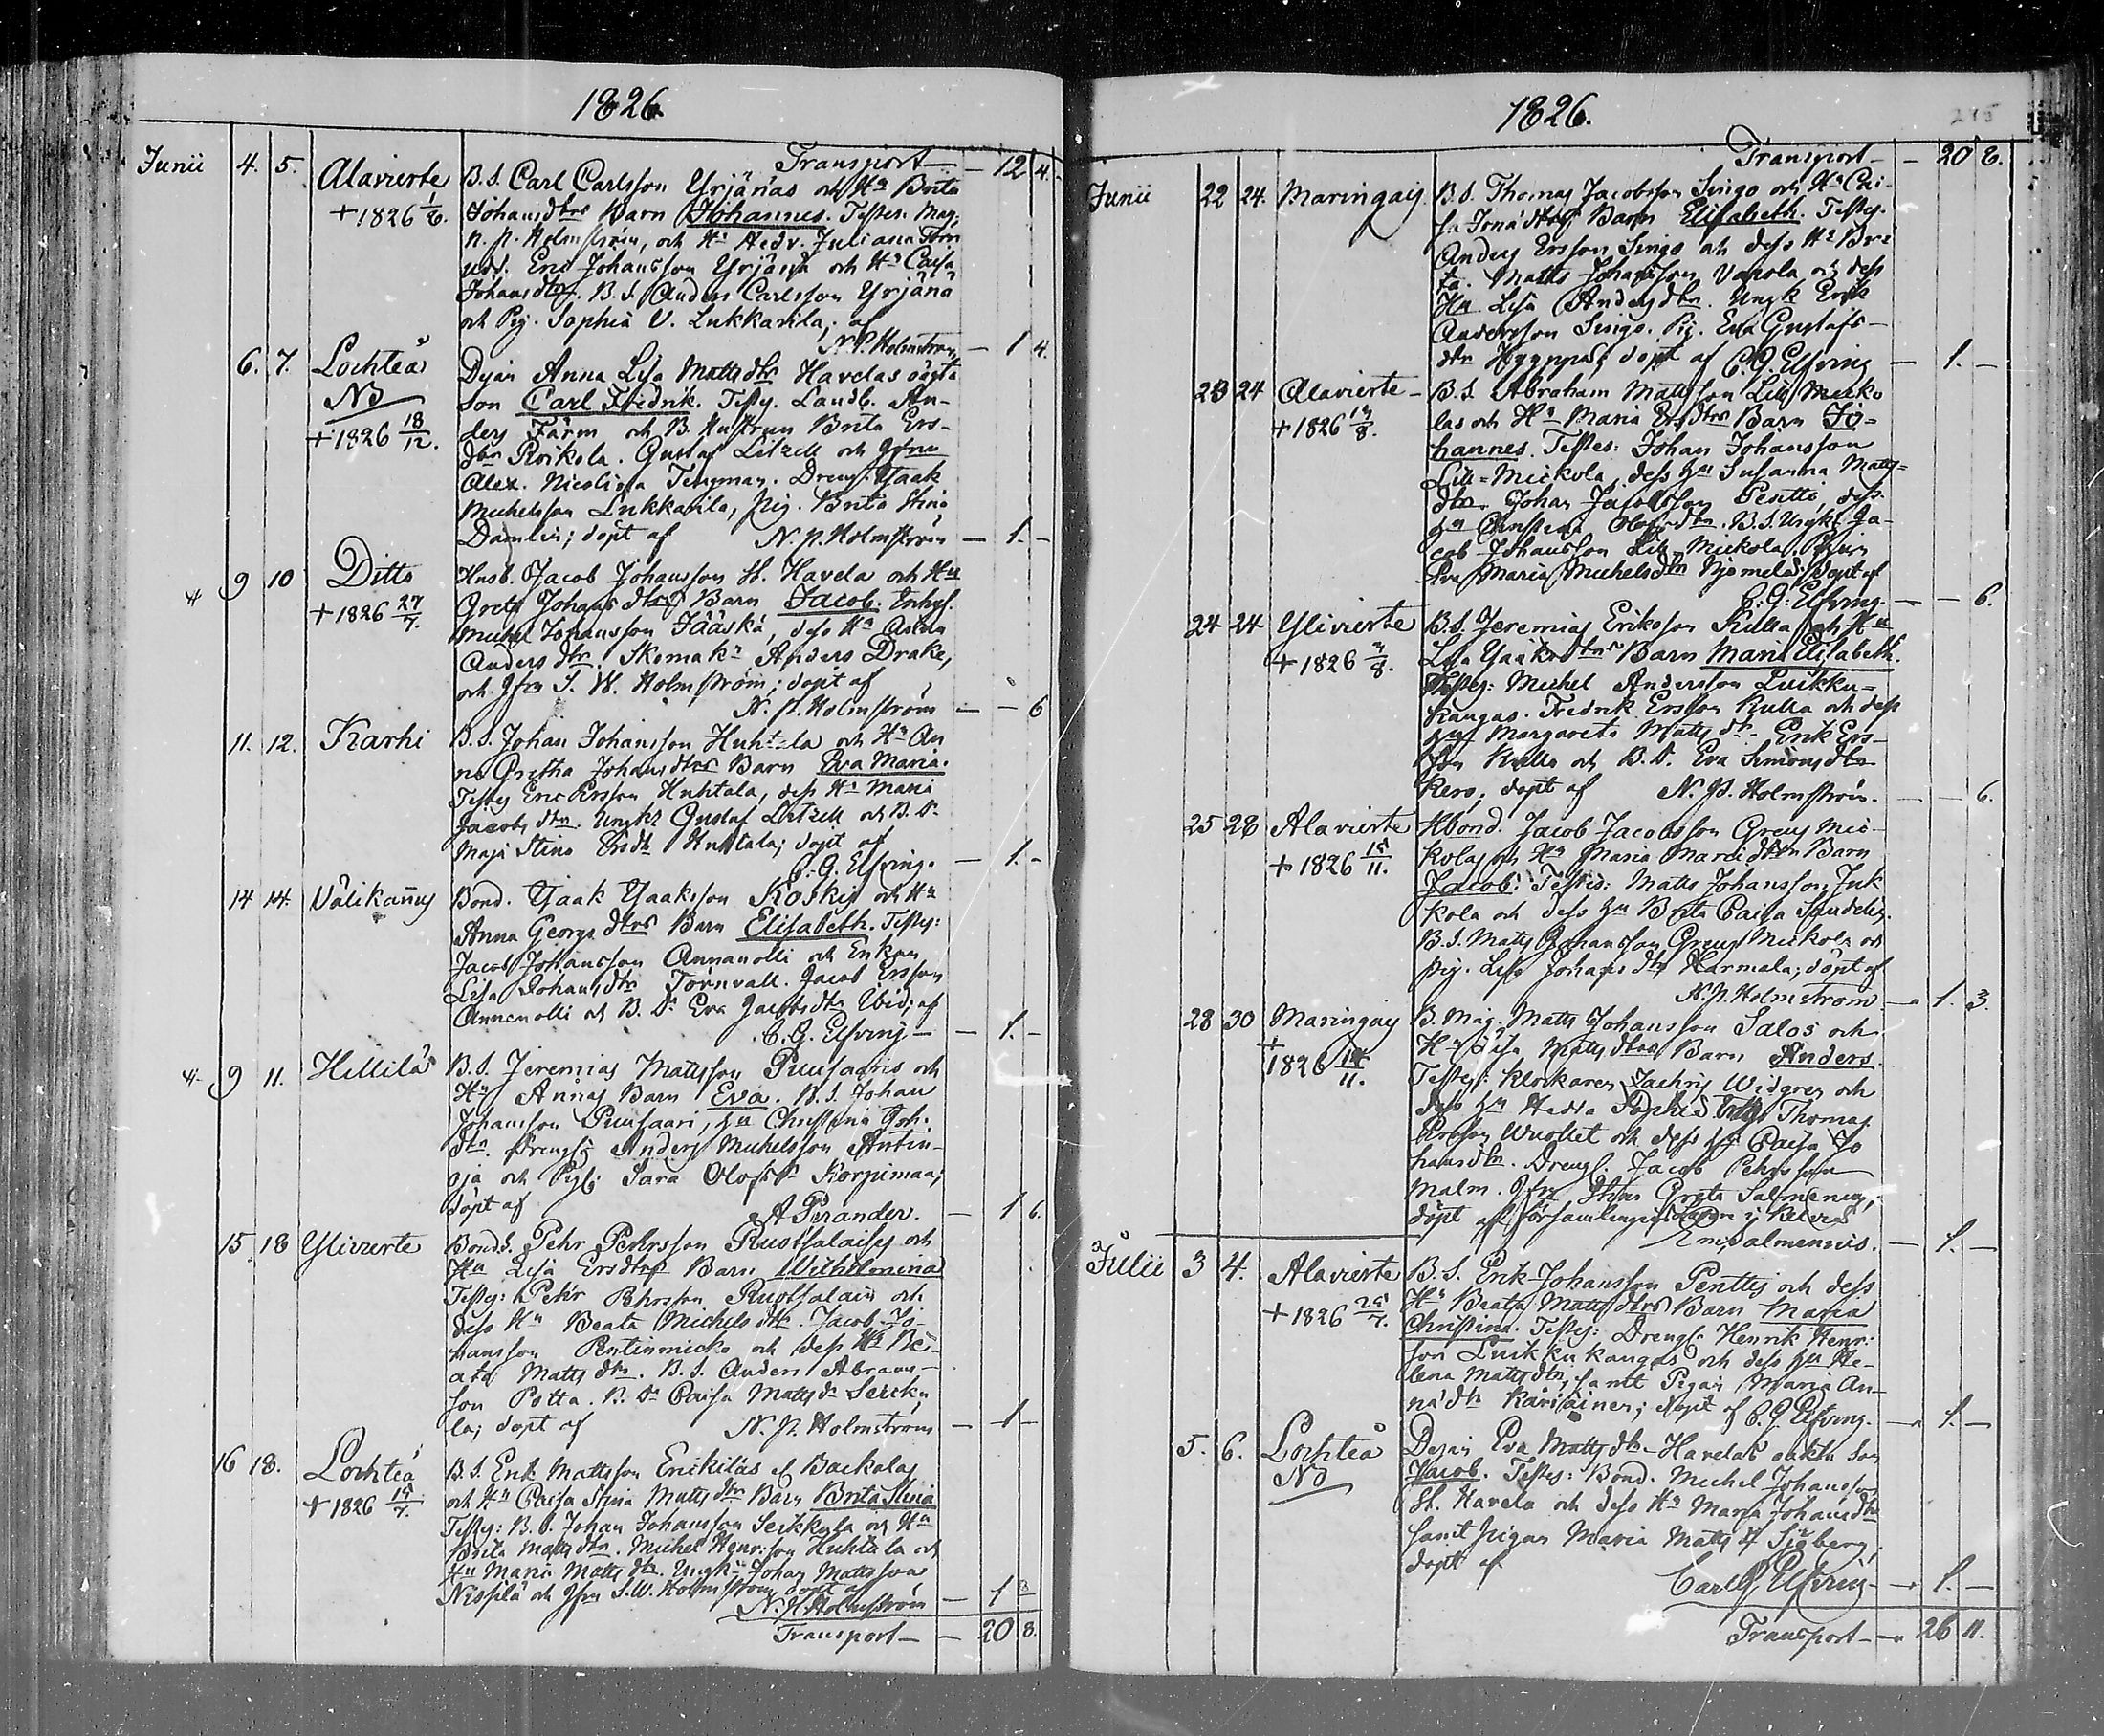 1826.
Transport — 12 4.
Junii 4. 5. Alavierte B. S. Carl Carlsson Yrjänäs och Hu Brita
+ 1826 1/8. Johansdtrs Barn Johannes. Testes: Mag.
N. P. Holmström, och Hr Hedv. Juliana
Eric Johansson Yrjänä och Hu Caisa
Johansdtr. B. S. Anders Carlsson Yrjänä
och Pig. Sophia V. Lukkarila; af
N. P. Holmström — 1 4.
6. 7. Lochteå Dejan Anna Lisa Mattsdtr Havelas oägta
No Son Carl Fredrik. Testes. Landb. An-
+ 1826 18/12. ders Färm och B. Hustrun Brita Ers-
dtr Roikola. Gustaf Litzell och Jfrun
Alex. Nicolina Tengman. Dreng. Isaak
Michelsson Lukkarila, Pig. Brita Stina
Damlin; döpt af N. P. Holmström — 1. -
9 10 Ditto Husb. Jacob Johansson St. Havela och Hu
+ 1826 27/7. Greta Johansdtrs Barn Jacob.
Michel Johansson Jääskä, dess Hu
Andersdtr. Skomakr Anders Drake,
och Jfru S. W. Holmström; döpt af
N. P. Holmström — - 6
11. 12. Karhi B. S. Johan Johansson Huhtala och Hu An
na Gretha Johansdtrs Barn Eva Maria.
Testes Eric Ersson Huhtala, dess Hu Maria
Jacobsdtr. Ungk. Gustaf Litzell och B. Dr
Maja Stina Ersdr Huhtala; döpt af
C. G. Elfving. — 1. -
14 14. Välikannus Bond. Isaak Isaksson Koskis och Hu
Anna Georgsdtrs Barn Elisabeth. Testes:
Jacob Johansson Annanolli och Enkan
Lisa Johansdtr Törnvall. Jacob Ersson
Annanolli och B. Dr Eva Jacobsdtr Ibid; af
C. G. Elfving — 1. -
9 11. Hillilä B. S. Jeremias Mattsson Puusaaris och
Hu Annas Barn Eva. B. S. Johan
Johansson Puusaari, Hu Christina Joh.
dtr. Drengs Anders Michelsson Antin-
oja och Pig: Sara Olofsdr Korpimaa;
döpt af A Perander. — 1 6.
15 18 Ylivierte Bonds. Pehr Pehrsson Ruotsalaises och
Hu Lisa Ersdtrs Barn Wilhelmina
Testes: Pehr Pehrsson Ruotsalain och
dess Hu Beata Michelsdtr. Jacob Jo-
hansson Pentinmicko och dess Hu Be-
ata Mattsdtr. B. S. Anders Abrams-
son Potta. B. Dr Caisa Mattsdr Seicku
la; döpt af N. P. Holmström — 1 -
16 18. Lochteå B. S. Erik Mattsson Erickiläs l Backalas
+ 1826 15/7. och Hu Caisa Stina Mattsdtrs Barn Brita Stina
Testes: B. S. Johan Johansson Seikkula och Hu
Brita Mattsdtr. Michel Henr:son Huhtala och
Hu Maria Mattsdtr. Ungk. Johan Mattsson
Nissilä och Jfru S. W. Holmström döpt af
N. P. Holmström — 1
Transport — 20 8.
1826. 215
Transport — 20 8.
Junii 22 24. Maringais B. S. Thomas Jacobsson Singo och Hu Cai-
sa Barn Elisabeth. Testes.
Anders Ersson Singo och dess Hu Bri
ta. Matts Johansson Varola och dess
Hu Lisa Andersdtr. Ungk Erik
Andersson Singo. Pig. Eva Gustafs-
dtr döpt af C. G. Elfving — 1. -
23 24 Alavierte — B. S. Abraham Mattsson Lill Micko
+ 1826 14/8. las och Hu Maria Ersdtrs Barn Jo-
hannes. Testes: Johan Johansson
Lill-Mickola, dess Hu Susanna Matts-
dtr. Johan Jacobsson Pentti, dess
Hu Christina Olofsdtr. B. S. Ungk. Ja-
cob Johansson Lill-Mickola. Pigan
Eva Maria Michelsdtr döpt af
C. G. Elfving. — - 6.
24 24 Ylivierte B. S. Jeremias Eriksson Kulla och Hu
+ 1826 /8. Lisa Isaksdtrs Barn Maria Elisabeth.
Testes: Michel Andersson Luikku-
kangas. Fredrik Ersson Kulla och dess
Hu Margareta Mattsdtr. Erik Ers-
son Kulla och B. D. Eva Simonsdtr
Kero; döpt af N. P. Holmström. — - 6.
25 28 Alavierte Hbond. Jacob Jacobsson Greus Mic-
+ 1826 15/11. kolas och Hu Maria Barn
Jacob. Testes: Matts Johansson Juk
kola och dess Hu Brita Caisa
B. S. Matts Johansson Greus Mickola och
Pig. Lisa Johansdtr Harmala; döpt af
N. P. Holmström — 1. 3.
28 30 Maringais B. Mag. Matts Johansson Salos och
+ Hu Lisa Mattsdtrs Barn Anders.
1826 14/11. Testes: Klockaren Zachris Widgren och
dess Hu Hedva Sophia Thomas
Ersson Wuollet och dess Hu Caisa Jo
hansdtr. Drengs. Jacob Pehrsson
Malm. Jfru Greta Salmenius;
döpt af församlingens i Kelviå
Salmenius. — 1. -
Julii 3 4. Alavierte B. S. Erik Johansson Penttis och dess
+ 1826 25/7. Hu Beata Mattsdtrs Barn Maria
Christina. Testes: Drengs. Henrik Henr:
son Luikkukangas och dess Hu He-
lena Mattsdtr, samt Pigan Maria An-
nädtr Kariainen; döpt af C. G. Elfving. — 1. -
5. 6. Lochteå Dejan Eva Mattsdtr Havelas oäkta Son
No Jacob. Testes: Bond. Michel Johansson
St. Havela och dess Hu Maria Johansdtr
samt Pigan Maria Mattsdr Sjöberg;
döpt af
Carl G. Elfving — 1. -
Transport — 26 11.